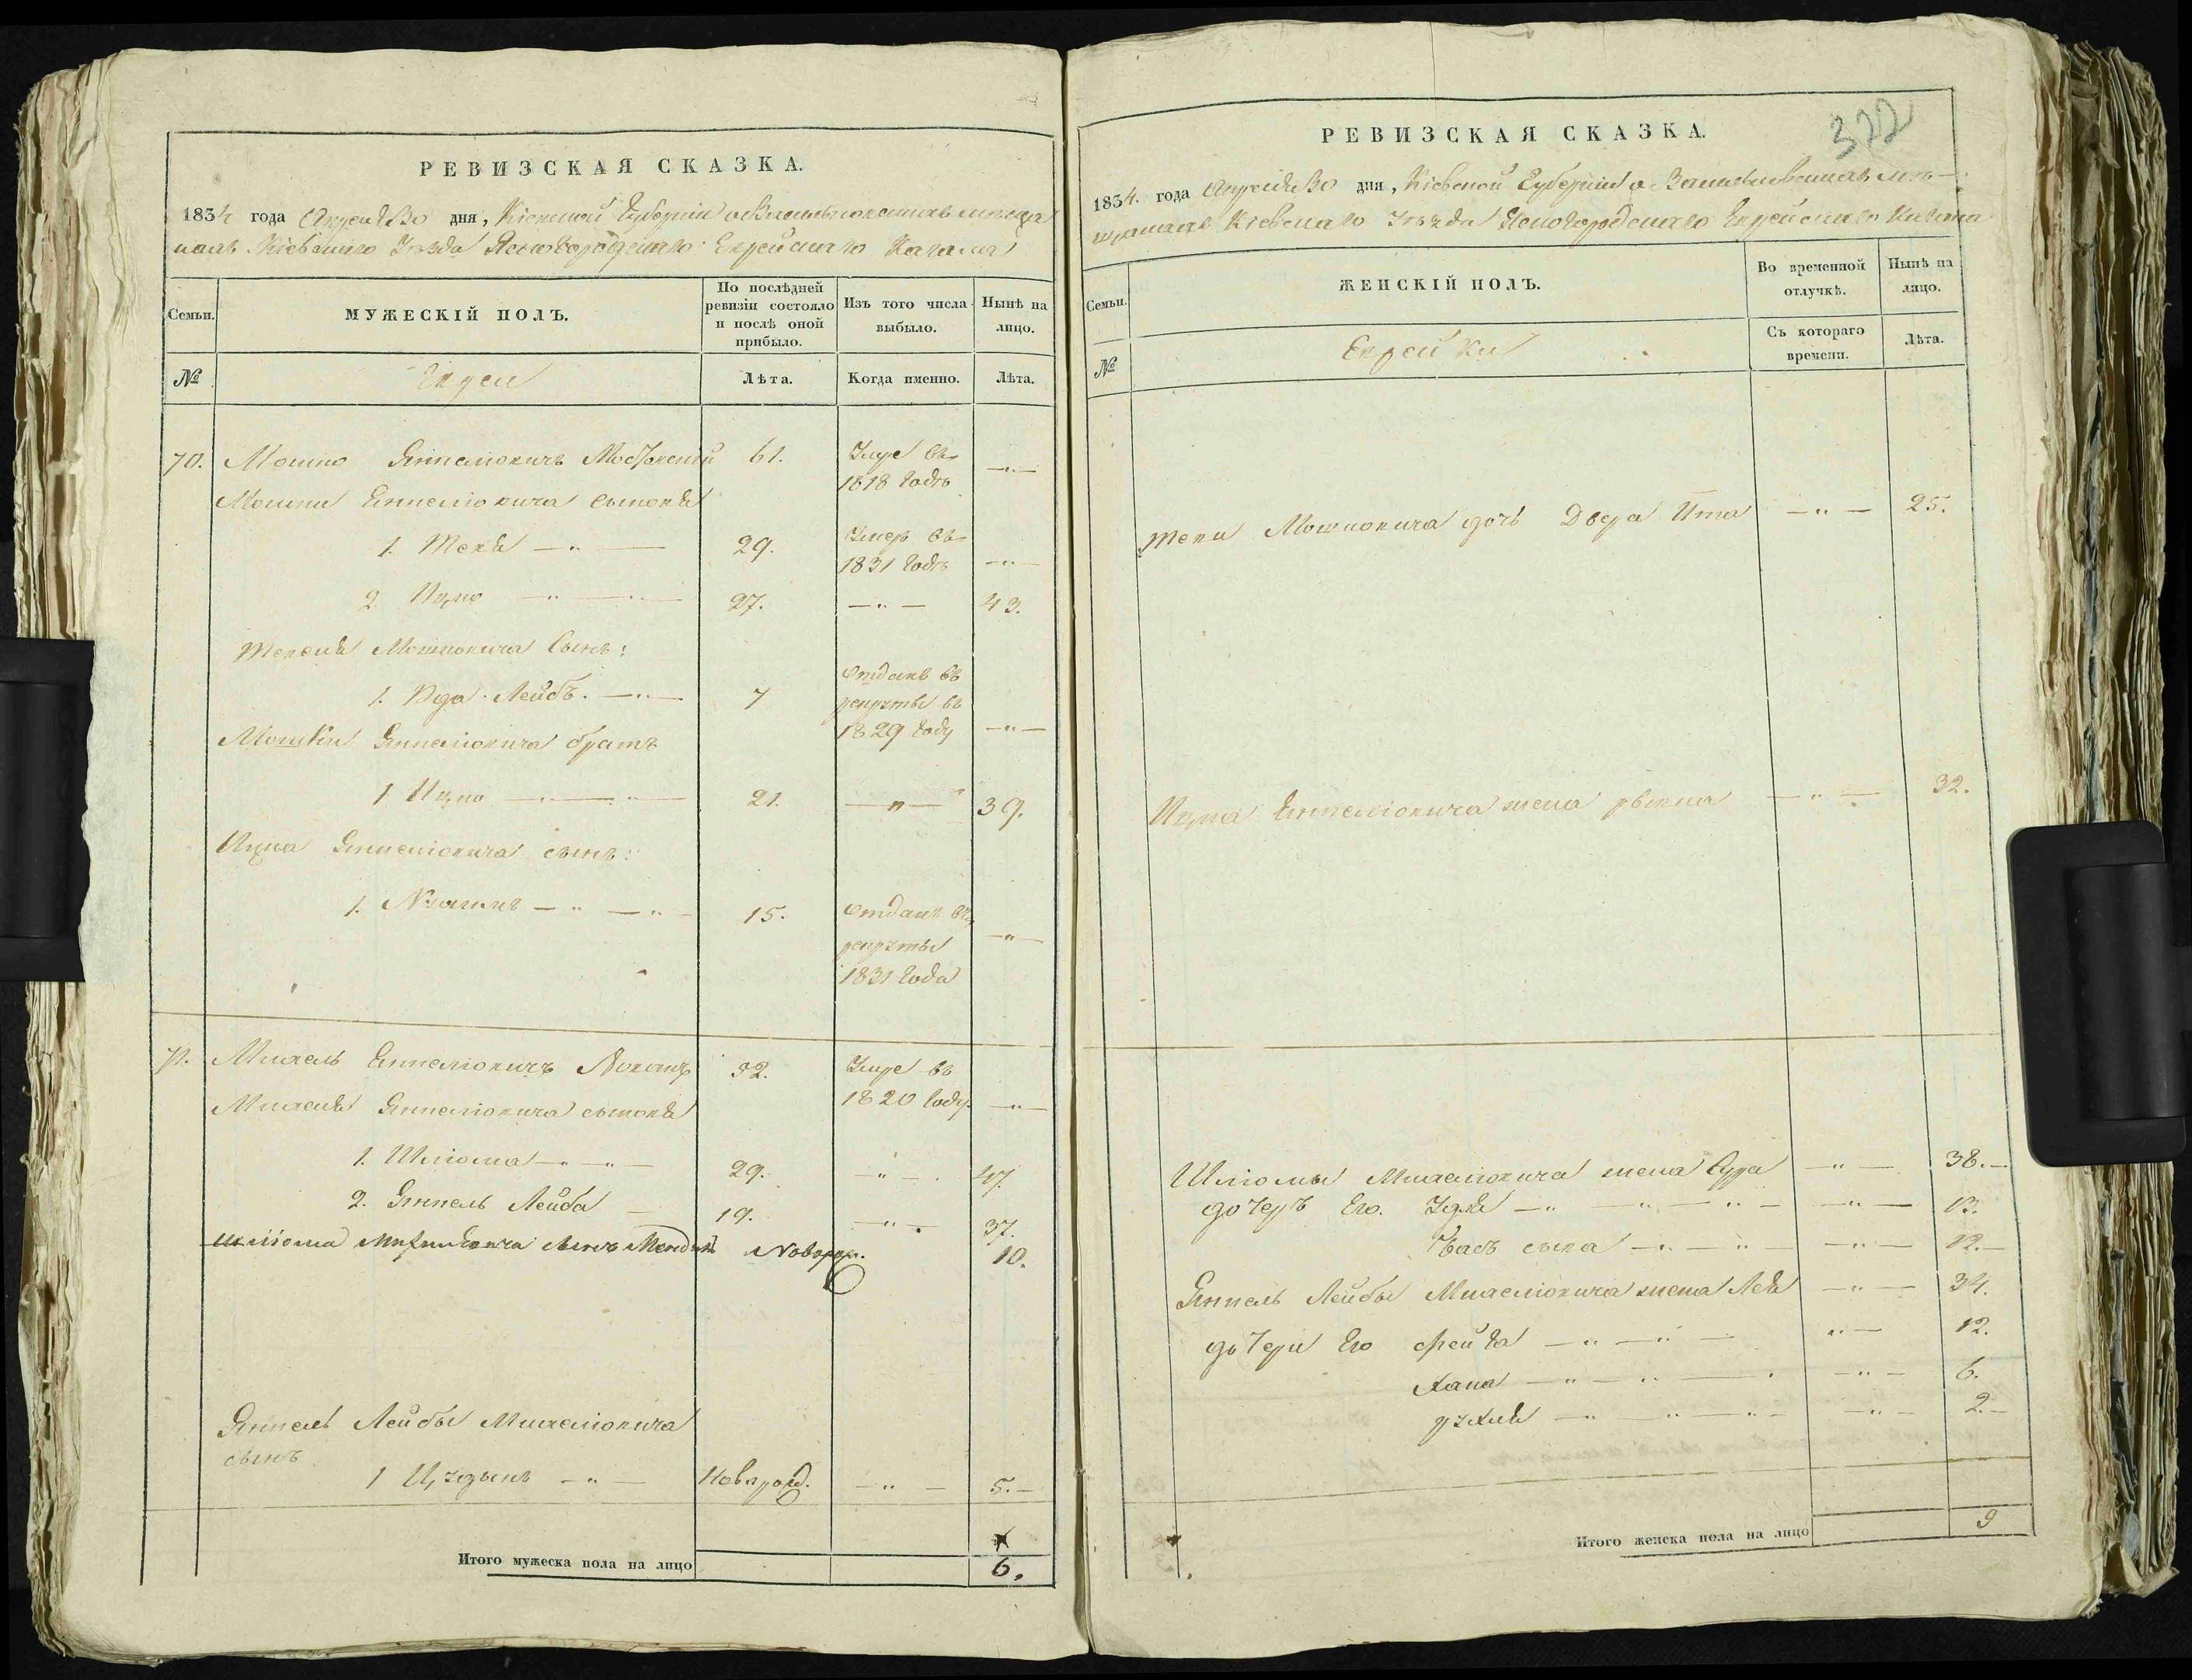 РЕВИЗСКАЯ СКАЗКА.
1834 года Апреля 30 дня, Кіевской Губерніи о Васильковскихъ мѣща
нахъ Кіевскаго Уѣзда Ясногородскаго Еврейскаго Кагала
Семьи.
МУЖЕСКІЙ ПОЛЪ.
По послѣдней ревизіи состояло и послѣ оной прибыло.
Изъ того числа выбыло.
Нынѣ на лицо.
№
Евреи
Лѣта.
Когда именно.
Лѣта.
70. Мошко Янкеліовичъ 61. Умре въ 1818 годѣ —"—
Мошки Янкеліовича сыновя
1. —"— 29. Умеръ въ 1831 годѣ —"—
2. Ицко —"— 27. —"— 43.
Мошковича Сынъ:
1. Лейбъ. —"— 7 Отданъ въ рекруты въ 1829 году —"—
Мошки Янкеліовича братъ
1 Ицко —"— 21. —"— 39.
Ицка Янкеліовича сынъ:
1. —"—"— 15. Отданъ въ рекруты 1831 года —"—
71. Михель Янкеліовичъ 52. Умре въ 1820 году. —"—
Михеля Янкеліовича сыновя
1. Шліома —"—"— 29. —"— 47.
2. Янкель Лейба — 19. —"— 37.
Шліома сынъ Новорож. 10.
Янкель Лейбы Михеліовича
сынъ
1 —"— Новорожд. —"— 5.—
Итого мужеска пола на лицо 6.
322
РЕВИЗСКАЯ СКАЗКА.
1834. года Апреля 30 дня, Кіевской Губерніи о Васильковскихъ мѣ-
щанахъ Кіевскаго Уѣзда Ясногородскаго Еврейскаго Кагала
Семьи.
ЖЕНСКІЙ ПОЛЪ.
Во временной отлучкѣ.
Нынѣ на лицо.
№
Еврейки
Съ котораго времени.
Лѣта.
Мошковича дочь Двера Ита —"— 25.
Ицка Янкеліовича жена ривка —"— 32.
Шліомы Михеліовича жена Сура —"— 38.—
дочеръ Его. —"—"—"— —"— 13.
—"—"— —"— 12.—
Янкель Лейбы Михеліовича жена Лея —"— 34.
дочери Его Фейга —"—"— "— 12.
Хана —"—"— —"— 6.
рухля —"—"—"— —"— 2.—
Итого женска пола на лицо 9